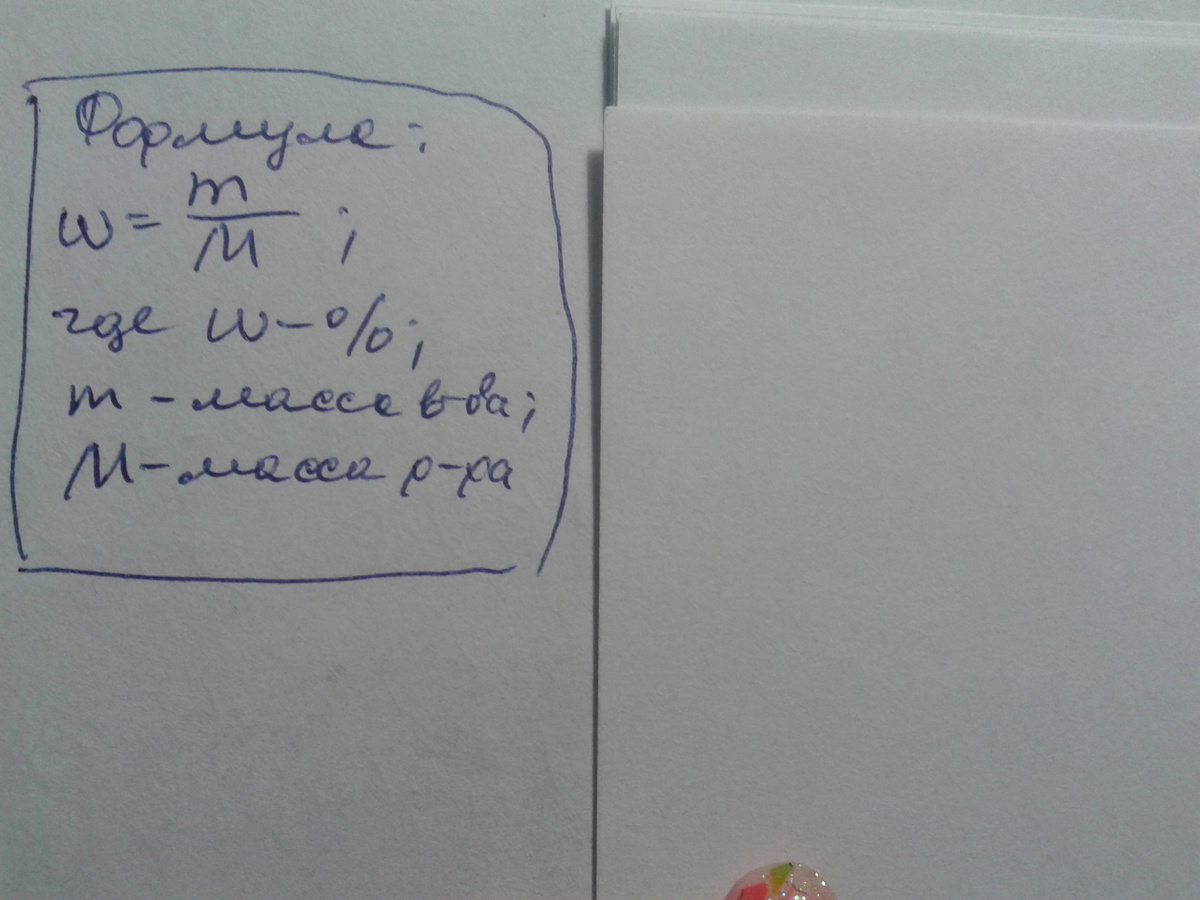 Формула:
w = m/M ;
где w – %;
m – масса в-ва;
M – масса р-ра